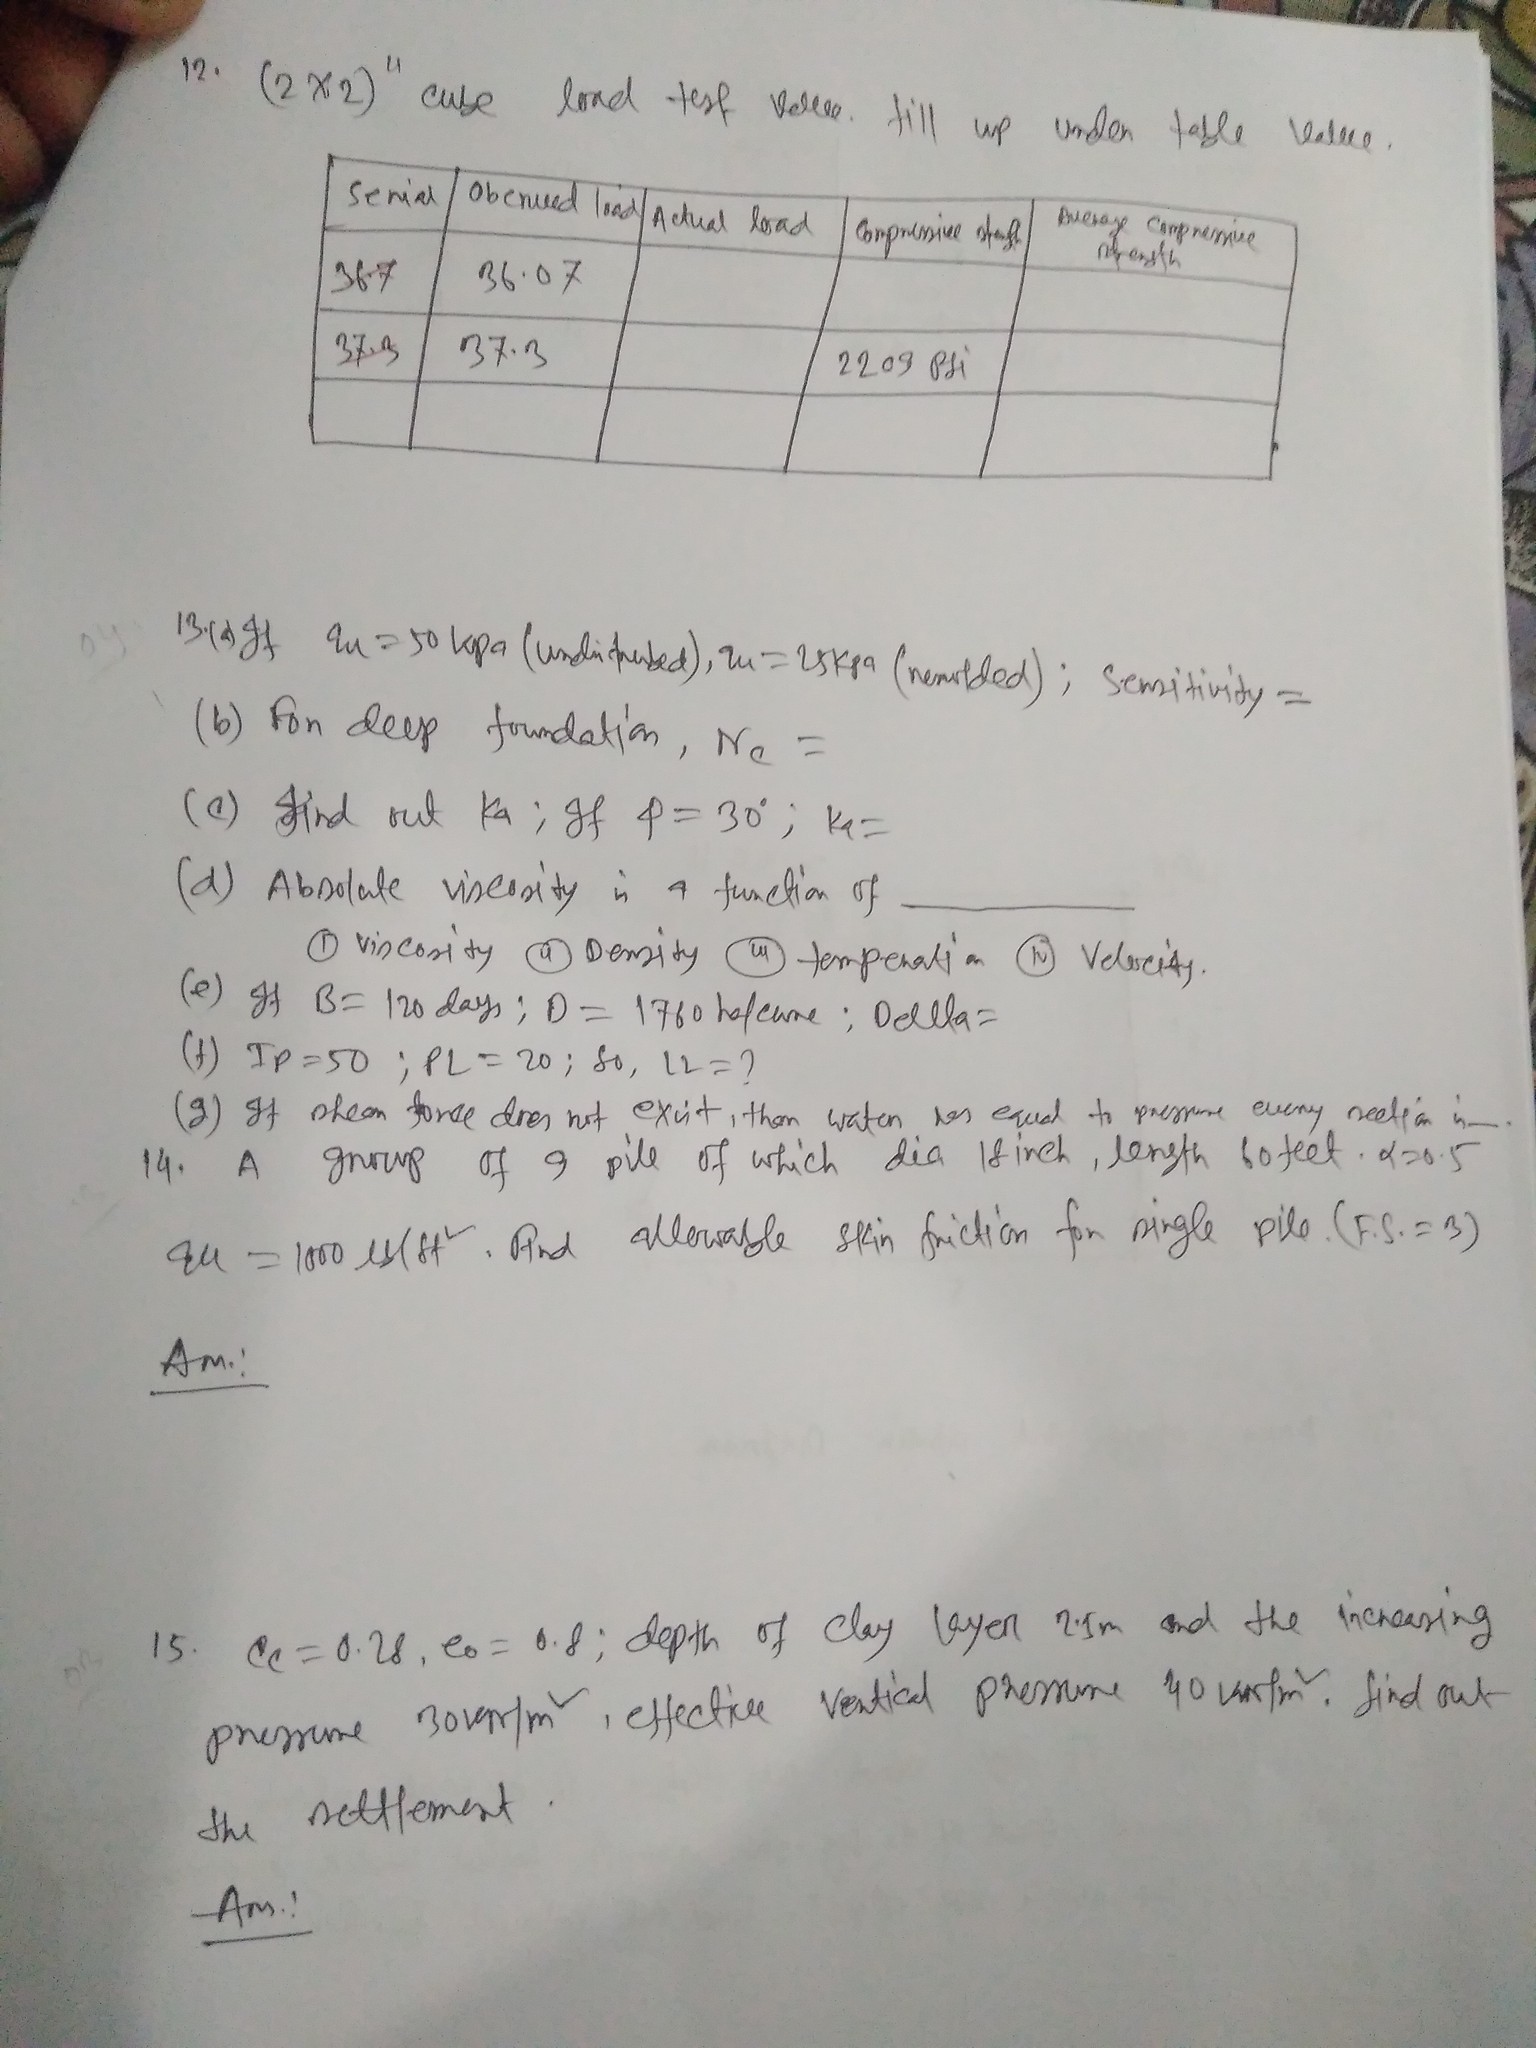 12. (2×2)" cube load test value. fill up under table value.
Serial Obcrued load Actual load Compressive strength Average compressive strength
36.7 36.07
37.3 37.3 2209 Psi
13.(a) If qu = 50 kpa (undisturbed), qu = 25 Kpa (remolded); Sensitivity =
(b) For deep foundation, Nc =
(c) find out Ka; If φ = 30°; Ka =
(d) Absolute viscosity is a function of ______
(i) viscosity (ii) Density (iii) temperation (iv) Velocity.
(e) If B = 120 days; D = 1760 hafcume; Dellta =
(f) IP = 50; PL = 20; So, LL = ?
(g) If shear force does not exist, then water has equal to pressure every section is __.
14. A group of 9 pile of which dia 18 inch, length 60 feet. α = 0.5
qu = 1000 lb/ft². Find allowable skin friction for single pile. (F.S. = 3)
Ans.:
15. Cc = 0.28, eo = 0.8; depth of clay layer 2.5m and the increasing
pressure 30 kN/m², effective vertical pressure 40 kN/m². find out
the settlement.
Ans.: